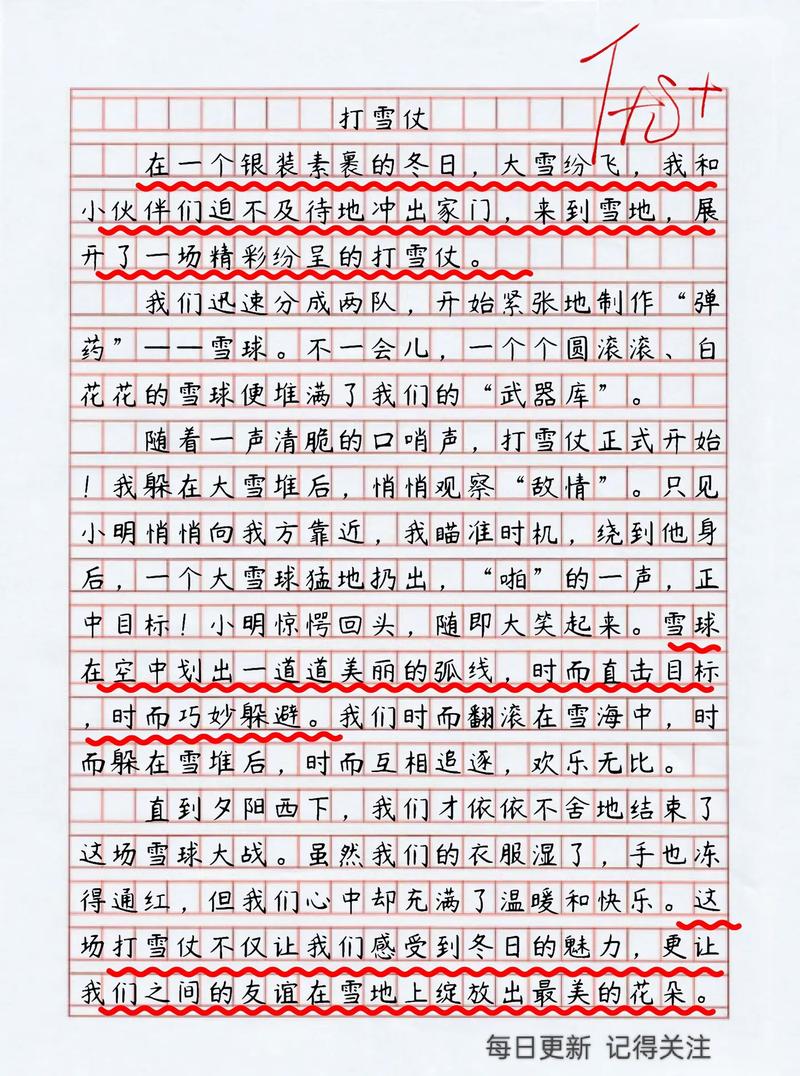 优+
打雪仗
在一个银装素裹的冬日，大雪纷飞，我和
小伙伴们迫不及待地冲出家门，来到雪地，展
开了一场精彩纷呈的打雪仗。
我们迅速分成两队，开始紧张地制作“弹
药”——雪球。不一会儿，一个个圆滚滚、白
花花的雪球便堆满了我们的“武器库”。
随着一声清脆的口哨声，打雪仗正式开始
！我躲在大雪堆后，悄悄观察“敌情”。只见
小明悄悄向我方靠近，我瞄准时机，绕到他身
后，一个大雪球猛地扔出，“啪”的一声，正
中目标！小明惊愕回头，随即大笑起来。雪球
在空中划出一道道美丽的弧线，时而直击目标
，时而巧妙躲避。我们时而翻滚在雪海中，时
而躲在雪堆后，时而互相追逐，欢乐无比。
直到夕阳西下，我们才依依不舍地结束了
这场雪球大战。虽然我们的衣服湿了，手也冻
得通红，但我们心中却充满了温暖和快乐。这
场打雪仗不仅让我们感受到冬日的魅力，更让
我们之间的友谊在雪地上绽放出最美的花朵。
每日更新 记得关注